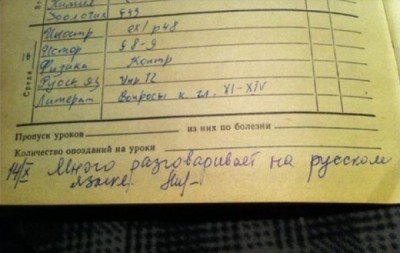 Химия
Зоология §33
Иностр ex1 p48
Истор § 8-9
Физика Контр
Русск яз Упр. 12
Литерат Вопросы к гл. XI-XIV
Среда
Пропуск уроков на них по болезни
Количество опозданий на уроки
14/X Много разговаривает на русском
языке.